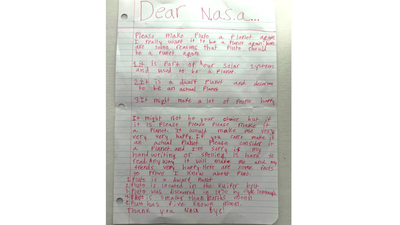 Dear Nasa...
Please make Pluto a Planet again
I really want it to be a Planet again here
are some reasons that Pluto should
be a Planet again
1 It is Part of our Solar systems
and used to be a Planet.
2 It is a dwarf Planet and deserve
to be an actual Planet
3 It might make a lot of People happy
It might not be your choice but if
it is Please Please Please make it
a Planet. It would make me very
very very happy. If you can't make it
an actual Planet Please consider it
a Planet. and I'm sorry if my
handwriting or spelling is hard to
read. Anyway it will make me and my
friends very happy. Here are some facts
to Prove I know about Pluto.
1. Pluto is a dwarf Planet.
2. Pluto is located in the Kuiper
3. Pluto was discovered in 1930 by Clyde Tombaugh
4. Pluto is smaller than Earths moon.
5. Pluto has five known moons.
Thank you NASA bye!